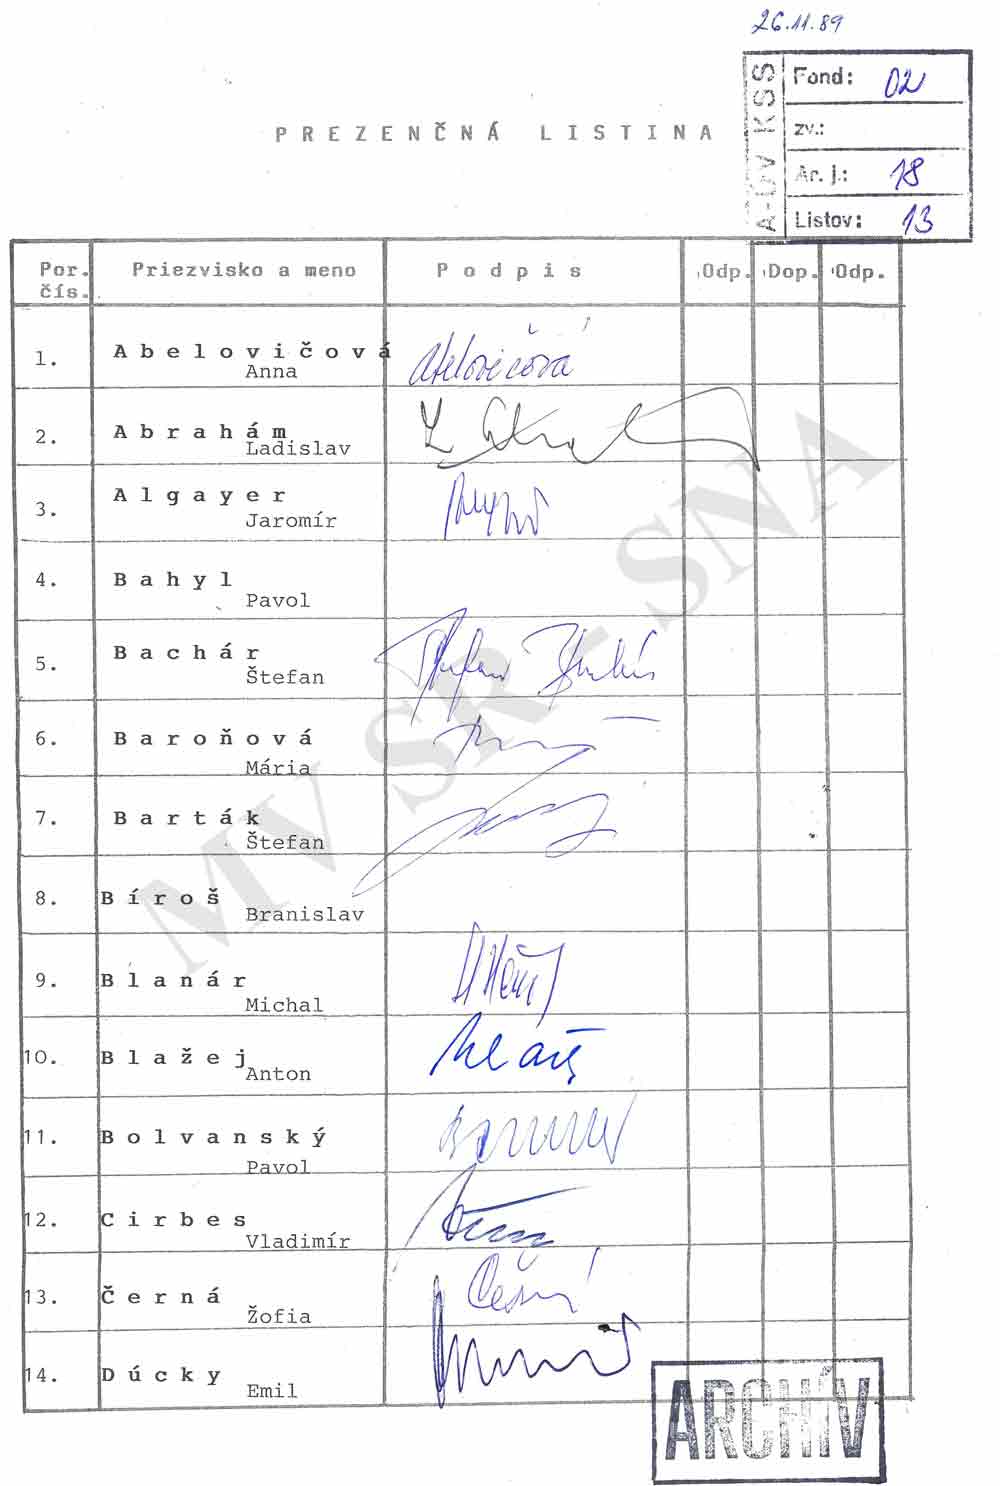 26.11.89
A-ÚV KSS
Fond: 02
zv.:
Ar. j.: 18
Listov: 13
PREZENČNÁ LISTINA
Por. čís. Priezvisko a meno Podpis Odp. Dop. Odp.
1. Abelovičová Abelovičová
Anna
2. Abrahám
Ladislav
3. Algayer
Jaromír
4. Bahyl
Pavol
5. Bachár Štefan Bachár
Štefan
6. Baroňová
Mária
7. Barták
Štefan
8. Bíroš
Branislav
9. Blanár
Michal
10. Blažej
Anton
11. Bolvanský
Pavol
12. Cirbes
Vladimír
13. Černá Černá
Žofia
14. Dúcky
Emil
MV SR - SNA
ARCHÍV